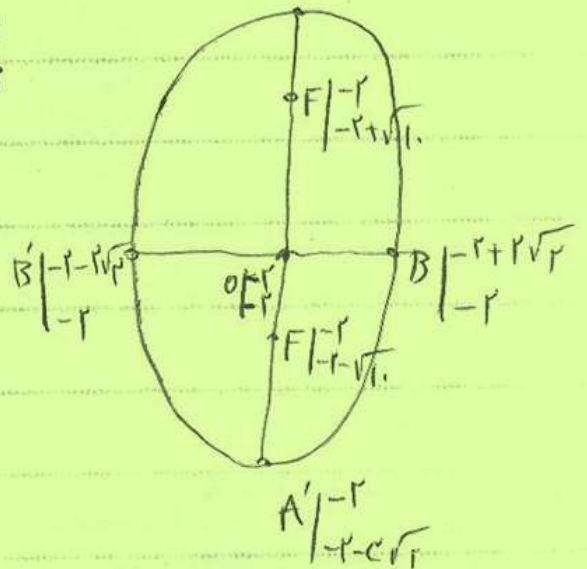 F | -۲
-۲+√۱۰
B' | -۲-۲√۲
-۲
O | -۲
-۲
B | -۲+۲√۲
-۲
F | -۲
-۲-√۱۰
A' | -۲